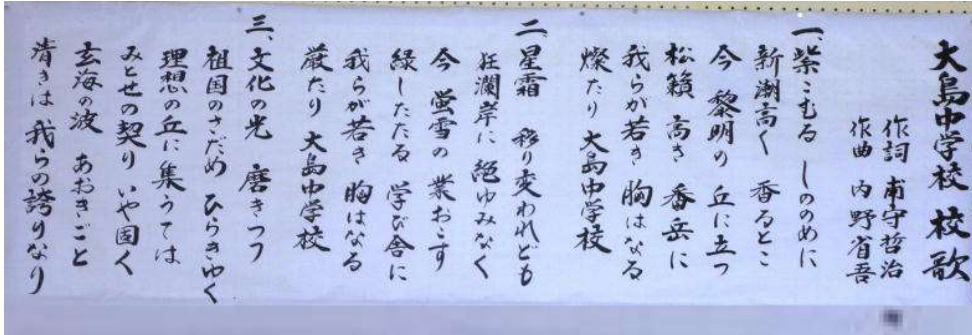 大島中学校 校歌
作詞 甫守哲治
作曲 内野省吾
一、紫こむる しののめに
新潮高く 香るとこ
今 黎明の 丘に立つ
松籟 高き 香岳に
我らが若き 胸はなる
燦たり 大島中学校
二、星霜 移り変われども
狂瀾岸に 絶ゆみなく
今 蛍雪の 業おこす
緑したたる 学び舎に
我らが若き 胸はなる
厳たり 大島中学校
三、文化の光 磨きつつ
祖国のさだめ ひらきゆく
理想の丘に 集うては
みとせの契り いや固く
玄海の波 あおきごと
清きは 我らの誇りなり